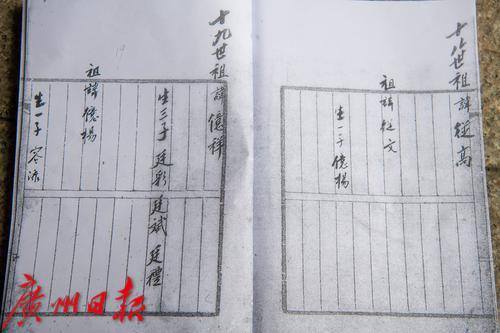 十八世祖諱從高
祖諱從文
生一子億楊
十九世祖諱億祥
生三子廷彩廷斌廷禮
祖諱億楊
生一子容沛
廣州日報